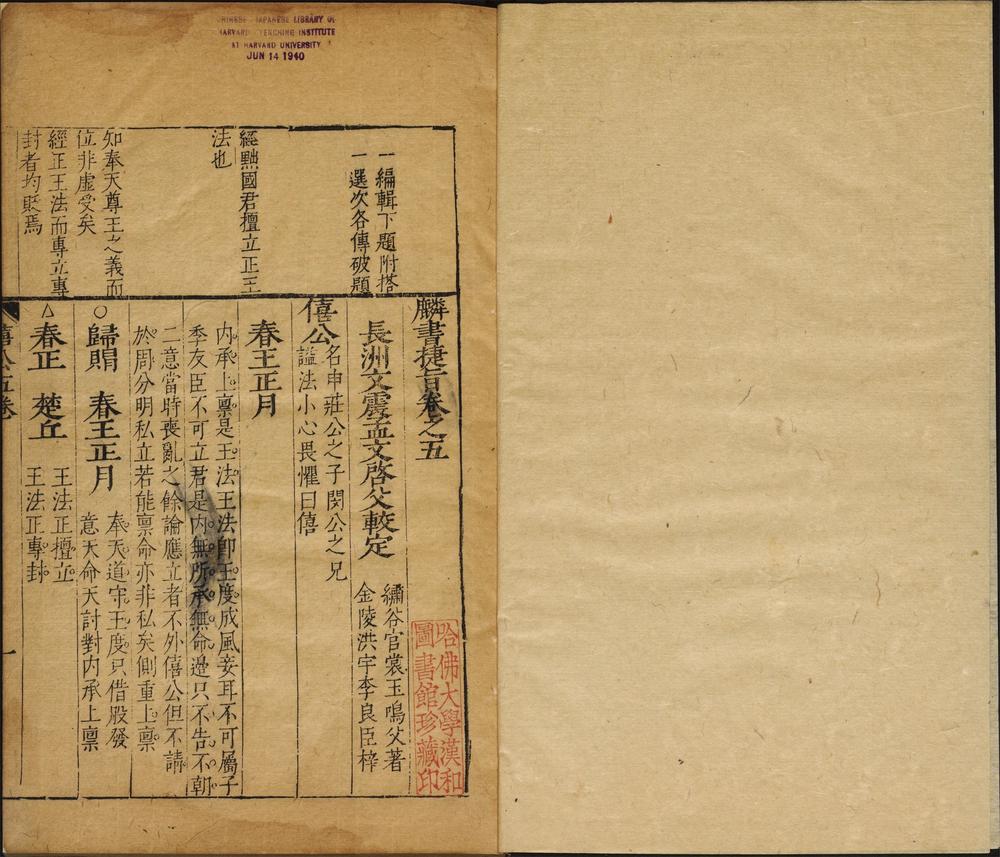 CHINESE JAPANESE LIBRARY OF
HARVARD YENCHING INSTITUTE
AT HARVARD UNIVERSITY
JUN 14 1940
一編輯下題附搭
一選次各傳破題
經黜國君擅立正王
法也
知奉天尊王之義而
位非虛受矣
經正王法而專立專
封者均貶焉
麟書捷旨卷之五
長洲文震孟文啓父較定
繡谷官裳玉鳴父著
金陵洪宇李良臣梓
僖公
名申莊公之子閔公之兄
謚法小心畏懼曰僖
春王正月
内承上禀是王法王法卽王度成風妾耳不可屬子
季友臣不可立君是内無所承無命邊只不告不朝
二意當時喪亂之餘論應立者不外僖公但不請
於周分明私立若能禀命亦非私矣側重上禀
○歸賵 春王正月
奉天道守王度只借股發
意天命天討對内承上禀
△春正 楚丘
王法正擅立
王法正專封
僖公五卷
一
哈佛大學漢和
圖書館珍藏印